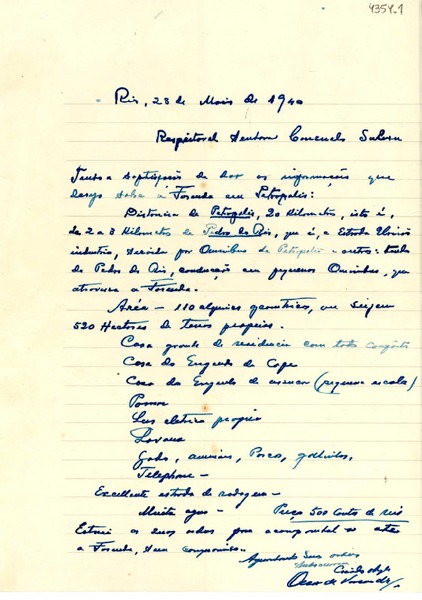 4354.1
Rio, 28 de Maio de 1940
Respeitavel Senhora Consuelo
Tenho a satisfação de dar as informações que
deseja sobre a Fazenda em Petropolis:
Distancia de Petropolis, 20 Kilometros, isto é,
de 2 a 3 Kilometros de Pedro do Rio, que é, a Estrada União
industria, servida por Omnibus de Petropolis
de Pedro do Rio, condução em pequenos Omnibus, que
atravessa a Fazenda.
Área – 110 alqueires geometricos, ou sejam
520 Hectares de terras proprias.
Casa grande de residencia com todo conforto
Casa do Engenho de Cafe
Casa do Engenho de assucar (pequena escala)
Pomar
Luz eletrica propria
Lavoura
Gado, animaes, Porcos, galinhas,
Telephone –
Excellente estrada de rodagem –
Muita agua – Preço 500 Contos de reis
Estarei as suas ordens para acompanhal-os até
a Fazenda, sem compromisso.
Aguardando suas ordens
subscrevo
Oscar de